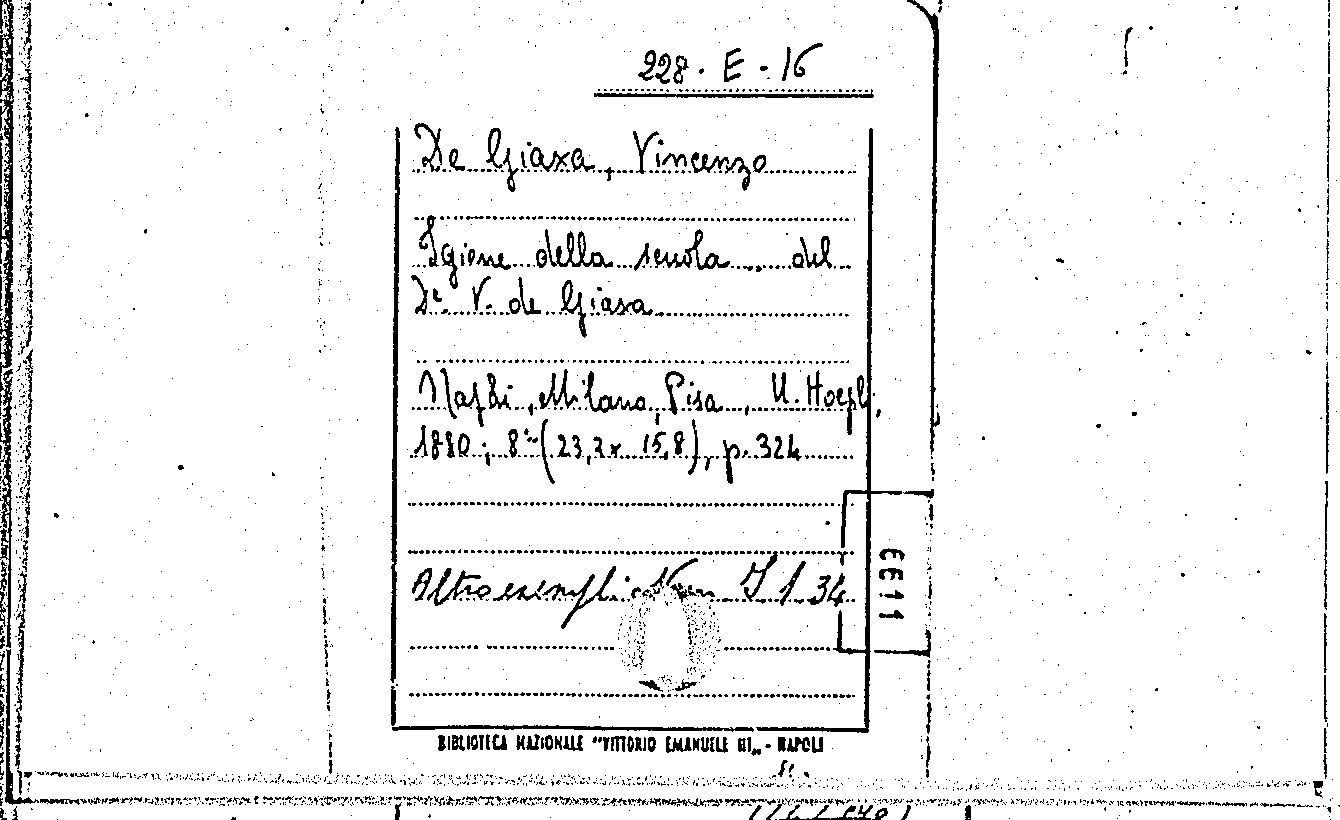 228. E. 16
De Giaxa, Vincenzo
Igiene della scuola .. del
Dr. V. de Giaxa
Napoli, Milano, Pisa, U. Hoepli,
1880; 8° (23,2x 15,8), p. 324
Altro esempl: S 1 34
EE11
BIBLIOTECA NAZIONALE "VITTORIO EMANUELE III„ - NAPOLI